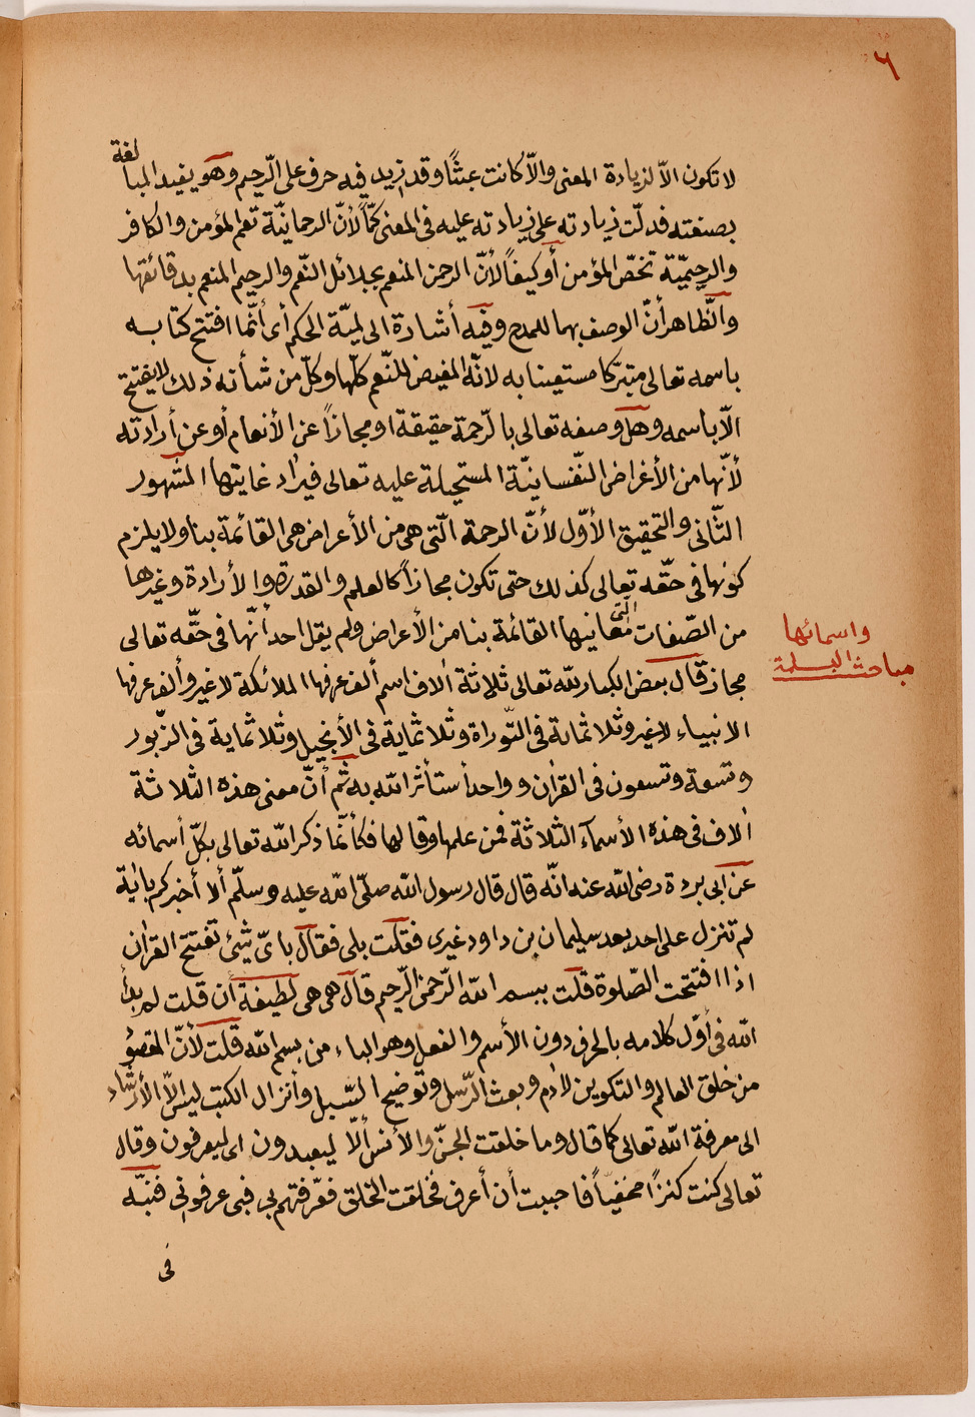 ٦
لا تكون الّا لزيادة المعنى والّا كانت عبثًا وقد زيد فيه حرف على الرّحيم وهو يفيد المبالغة
بصيغته فدلّت زيادته على زيادته عليه فى المعنى كمًّا لأنّ الرحمانيّة تعم المؤمن والكافر
والرحيميّة تخصّ المؤمن أو كيفاً لأنّ الرحمن المنعم بجلائل النّعم والرحيم المنعم بدقائقها
والظّاهر أنّ الوصف بهما للمدح وفيه أشارة الى لميّة الحكم أى أنّما افتتح كتابه
باسمه تعالى متبرّكا مستعينا به لانّه المفيض للنّعم كلّها وكلّ من شأنه ذلك لا يفتتح
الّا باسمه وهل وصفه تعالى بالرّحمة حقيقة او مجازاً عن الأنعام أو عن أرادته
لأنّها من الأعراض النّفسانيّة المستحيلة عليه تعالى فيراد غايتها المشهور
الثّانى والتحقيق الأوّل لأنّ الرحمة الّتى هى من الأعراض هى القائمة بنا ولا يلزم
كونها فى حقّه تعالى كذلك حتى تكون مجازاً كالعلم والقدرة والأرادة وغيرها
من الصّفات الّتى معانيها القائمة بنا من الأعراض ولم يقل احد أنّها فى حقّه تعالى
مجاز قال بعض الكبار لله تعالى ثلاثة الاف اسم ألف عرفها الملائكة لا غير وألف عرفها
الانبياء لا غير وثلاثماية فى التّوراة وثلاثماية فى الأنجيل وثلاثماية فى الزّبور
وتسعة وتسعون فى القرأن وواحد أستأثر الله به ثم أنّ معنى هذه الثلاثة
الاف فى هذه الأسمآء الثلاثة فمن علمها وقالها فكأنّما ذكر الله تعالى بكلّ أسمائه
عن ابى بردة رضى الله عنه انّه قال قال رسول الله صلّى الله عليه وسلّم ألا أخبركم باية
لم تنزل على احد بعد سليمان بن داود غيرى فقلت بلى فقال باىّ شيئ تفتتح القرأن
اذا افتتحت الصّلوة قلت ببسم الله الرّحمن الرّحيم قال هى هى لطيفة أن قلت لم بدأ
الله فى أوّل كلامه بالحرف دون الأسم والفعل وهو الباء من بسم الله قلت لأنّ المقصود
من خلق العالم والتكوين لادم وبعث الرّسل وتوضيح السّبل وأنزال الكتب ليس الّا الأرشاد
الى معرفة الله تعالى كما قال وما خلقت الجنّ والأنس ألّا ليعبدون اى ليعرفون وقال
تعالى كنت كنزاً مخفيّاً فاحببت أن أعرف فخلقت الخلق فعرّفتهم بى فبى عرفونى فنبّه
فى
واسمائها
مباحث البسلمة